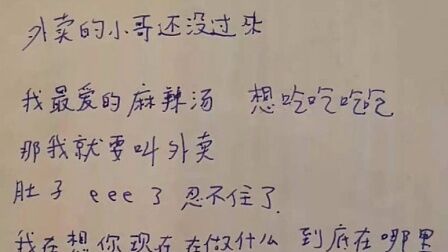 外卖的小哥还没过来
我最爱的麻辣汤 想吃吃吃吃
那我就要叫外卖
肚子 eee 了 忍不住了
我在想你现在在做什么 到底在哪里